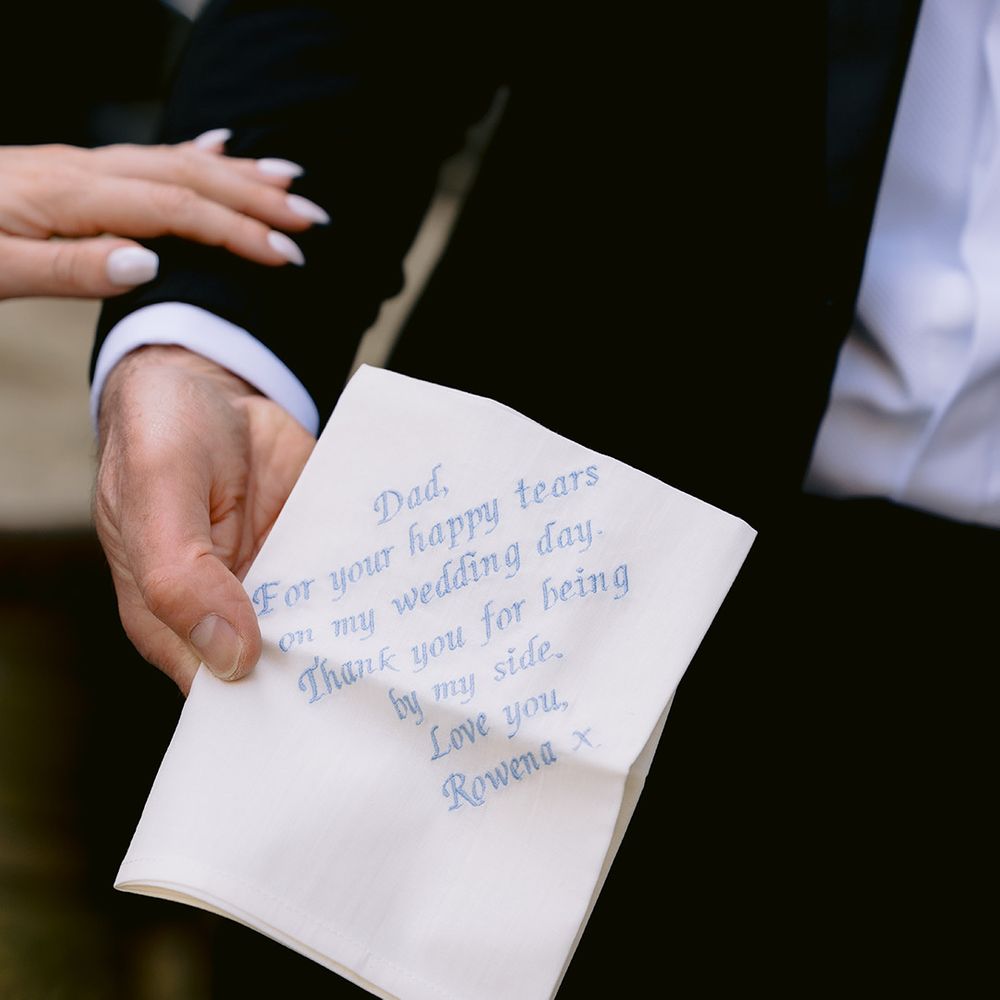 Dad,
For your happy tears
on my wedding day.
Thank you for being
by my side.
Love you,
Rowena x